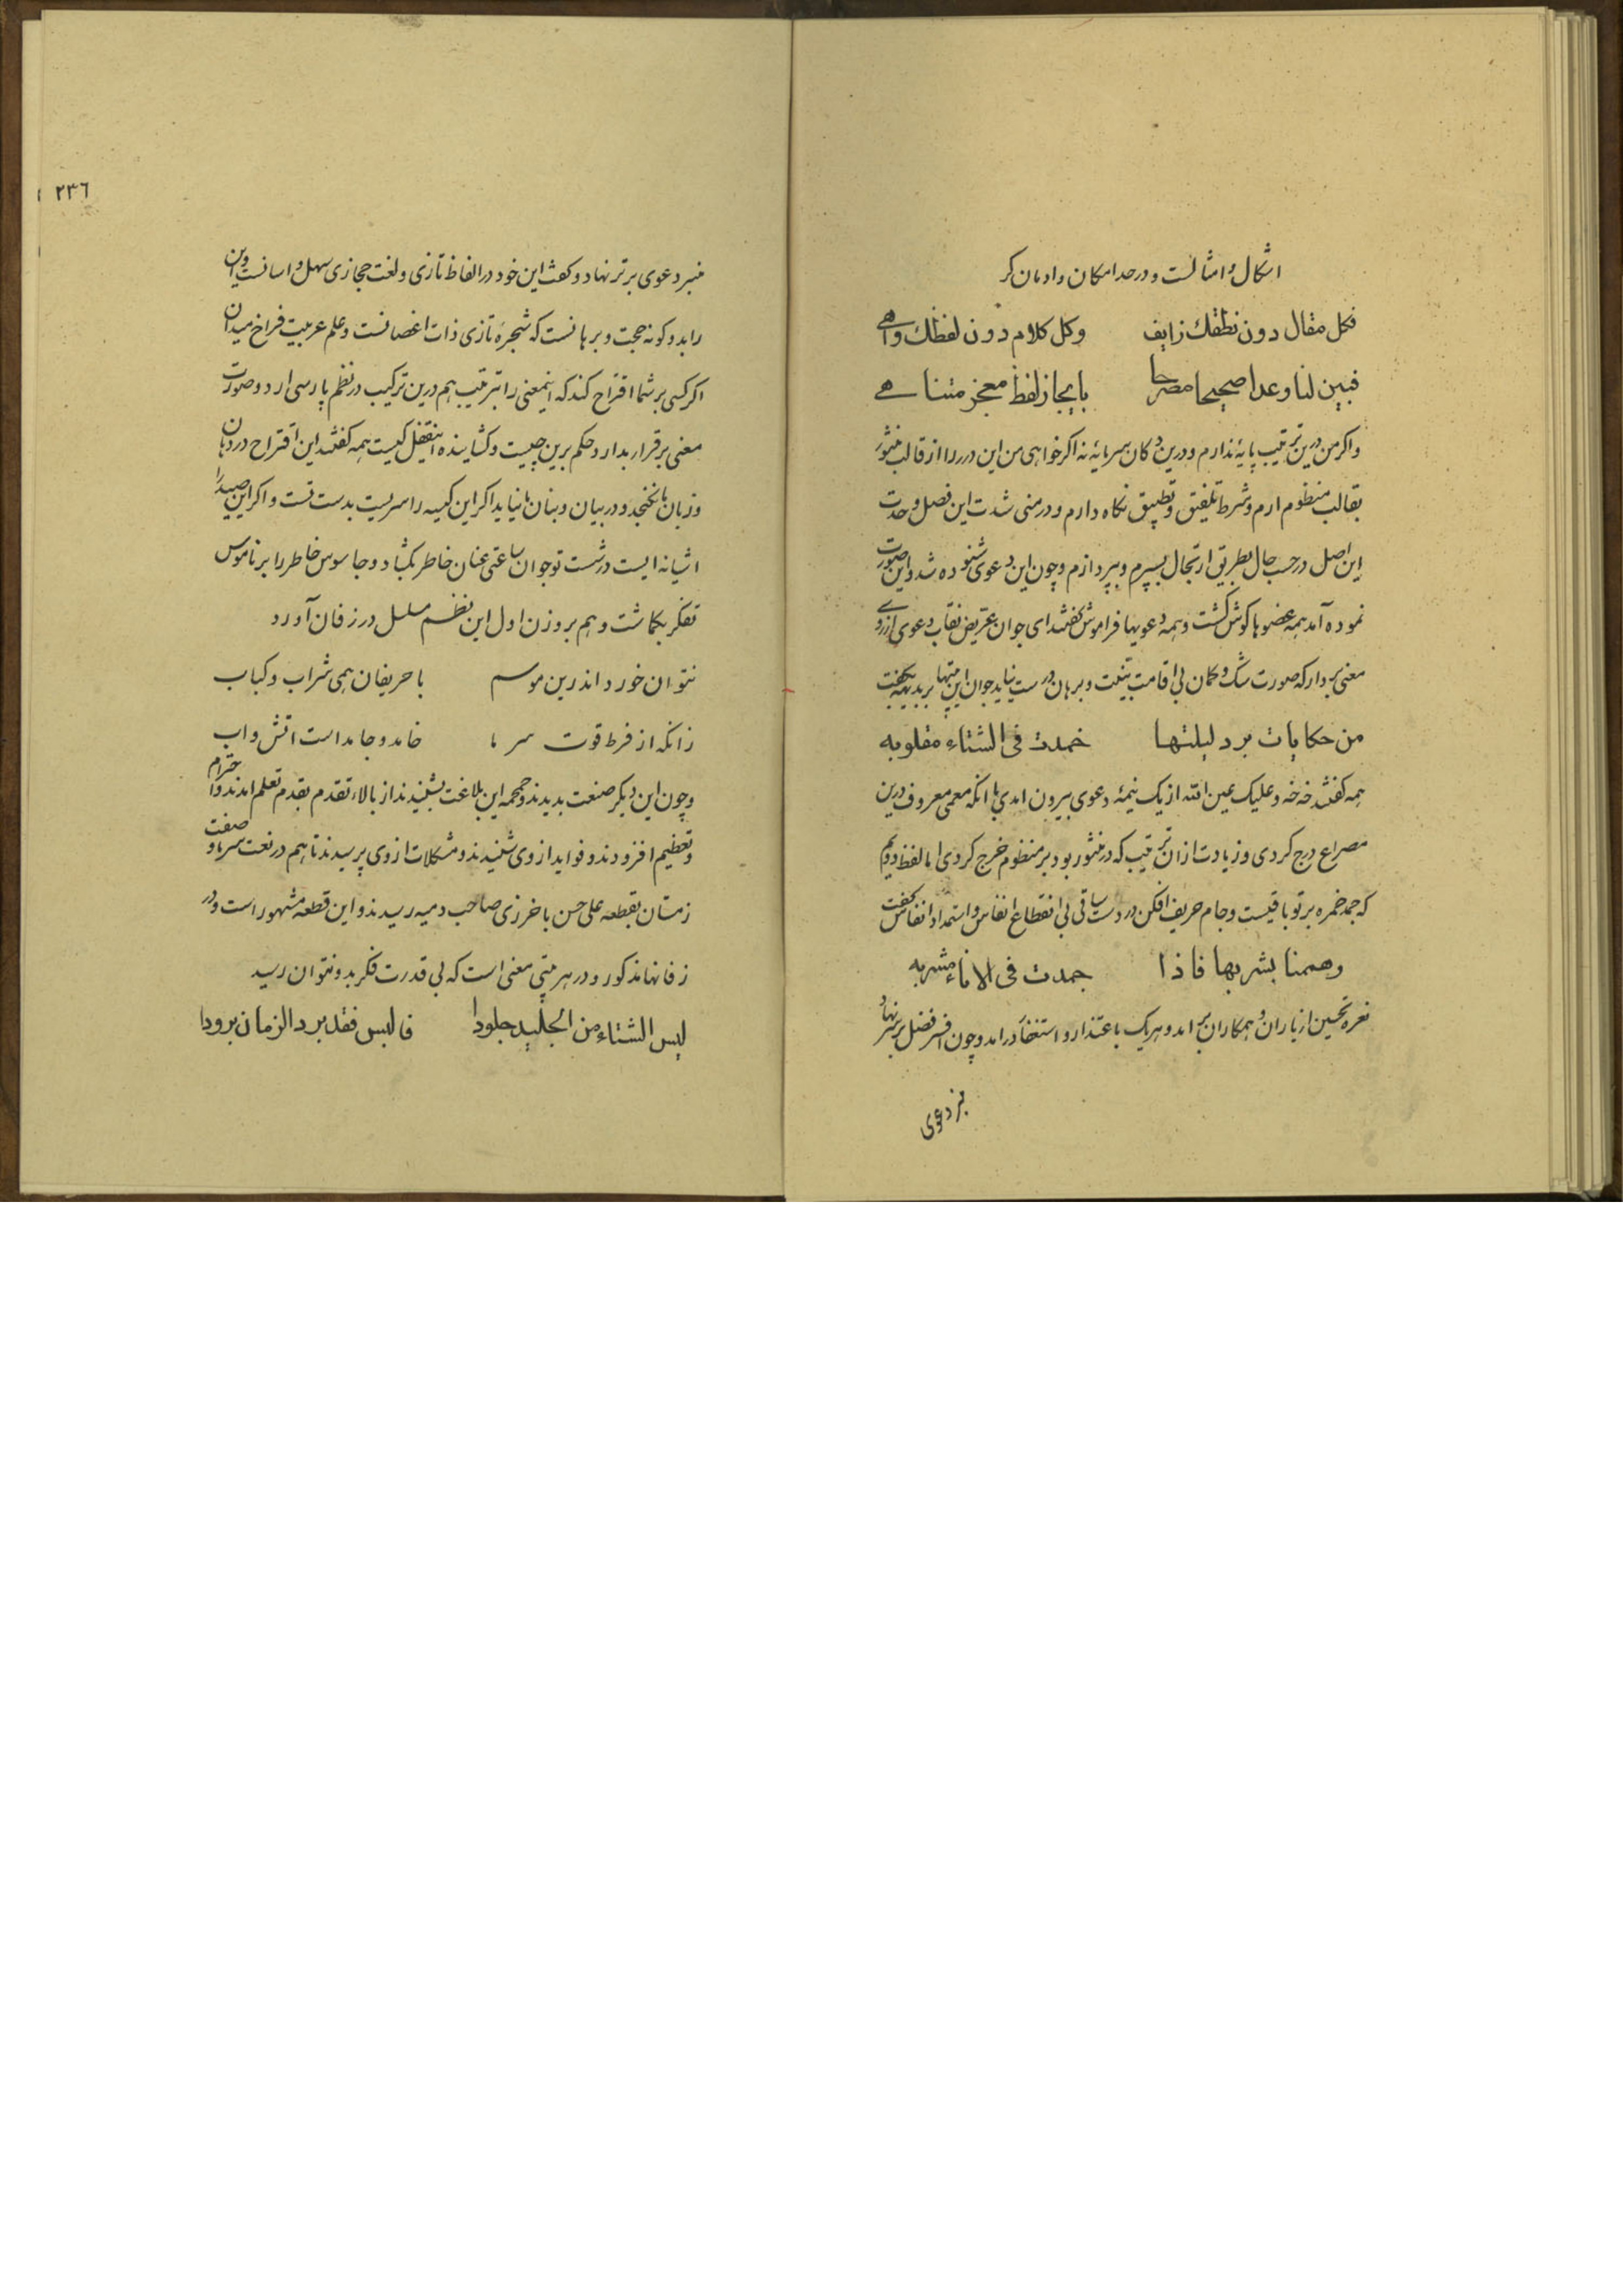 اشکال و امثالست و در حد امکان و ادمان کر
فکل مقال دون نطقك زایف وکل کلام دون لفظك واهے
فبین لنا وعدا صحیحا مصرحا بایجاز لفظ معجز متناهے
واکر من درین ترتیب پایۀ ندارم و درین دکان سرمایۀ نه اکر خواهی من این درر را از قالب منثور
بقالب منظوم ارم و شرط تلفیق و تطبیق نکاه دارم و در منی شدت این فصل و حدت
این اصل در حسب حال بطریق ارتجال بسپرم و بپردازم و چون این دعوی شنوده شد و این صورت
نموده آمد همه عضوها کوش کشت و همه دعویها فراموش کفتند ای جوان عریض نقاب دعوی از روے
معنی بردار که صورت شک و کمان بی اقامت بینت و برهان درست نیاید جوان این بیتها بر بدیهه بکفت
من حکایات برد لیلتها خمدت فی الشتاء مقلوبه
همه کفتند خه خه و علیک عین الله از یک نیمۀ دعوی بیرون امدی با انکه معمی معروف درین
مصراع درج کردی و زیادت ازان ترتیب که در منثور بود بر منظوم خرج کردی اما لفظ دویم
که جمد خمره بر تو باقیست و جام حریف افکن در دست ساقی بی انقطاع انفاس و استمداد انفاس کفت
وهممنا بشربها فاذا جمدت فی الاناء مشربه
نعره تحسین از یاران و همکاران بر امد و هر یک باعتذار و استغفار درامد و چون افسر فضل بر سر نهاد
منبر دعوی
٢٣٦
منبر دعوی برتر نهاد و کفت این خود در الفاظ تازی و لغت حجازی سهل و اسانست و این
را بدو کونه حجت و برهانست که شجرۀ تازی ذات اغصانست و علم عربیت فراخ میدان
اکر کسی بر شما اقتراح کند که اینمعنی را بترتیب هم درین ترکیب در نظم پارسی ارد و صورت
معنی برقرار بدارد حکم برین چیست و کشاینده این قفل کیست همه کفتند این اقتراح در دهان
و زبان ها نکنجد و در بیان و بنان ها نیاید اکر این کیسه را سریست بدست تست و اکر این صید را
اشیانه ایست در شست تو جوان ساعتی عنان خاطر بکشاد و جاسوس خاطر را بر ناموس
تفکر بکماشت و هم بر وزن اول این نظم مسلسل در زفان آورد
نتوان خورد اندرین موسم با حریفان همی شراب و کباب
زانکه از فرط قوت سرما خامد و جامد است اتش و اب
و چون این دیکر صنعت بدیدند و حمحمه این بلاغت بشنیدند از بالاء تقدم بقدم تعلم امدند و احترام
و تعظیم افزودند و فواید از وی شنیدند و مشکلات از وی پرسیدند تا هم در نعت سرما و صفت
زمستان بقطعه علی حسن باخرزی صاحب دمیه رسیدند و این قطعه مشهور است و در
زفانها مذکور و در هر بیتی معنی است که بی قدرت فکر بدو نتوان رسید
لبس الشتاء من الجلید جلودا فالبس فقد برد الزمان برودا